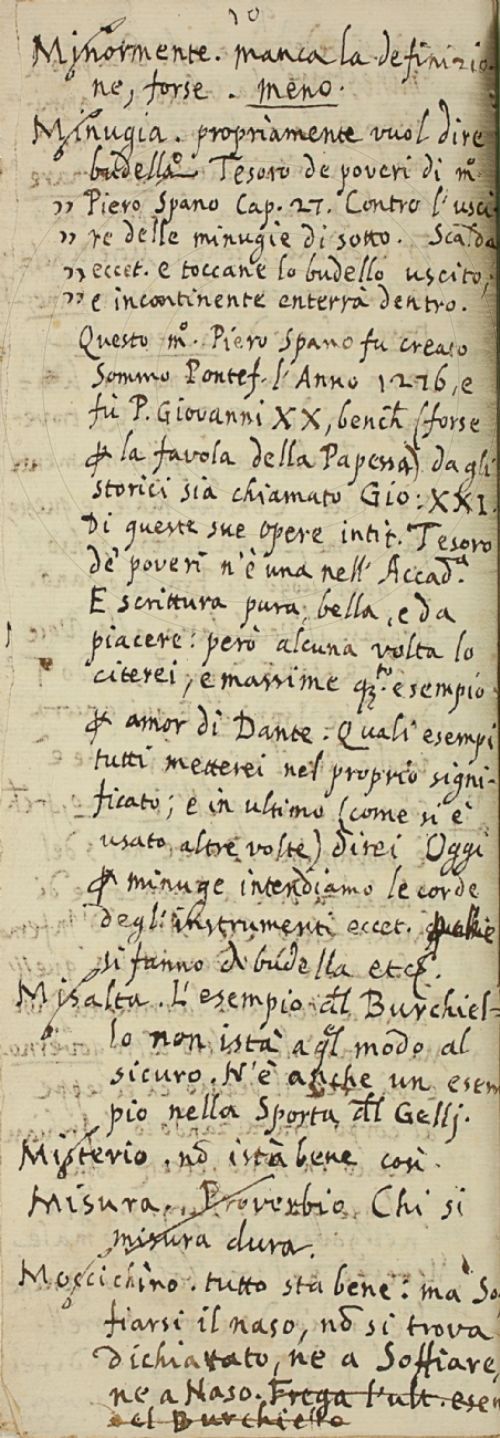 10
Minormente. manca la definizio-
ne, forse. meno.
Minugia. propriamente vuol dire
budello. Tesoro de poveri di mº
„ Piero Spano Cap. 27. Contro l'usci-
„ re delle minugie di sotto. Scalda
„ eccet. e toccane lo budello uscito,
„ e incontinente enterrà dentro.
Questo mº. Piero Spano fu creato
Sommo Pontef. l'Anno 1276, e
fù P. Giovanni XX, bench̃ (forse
ꝑ la favola della Papessa) dagli
storici sia chiamato Gio: XXI.
Di queste sue opere intit. Tesoro
de' poveri n'è una nell' Accad.ª
E scrittura pura, bella, e da
piacere: però alcuna volta lo
citerei, e massime esempio
ꝑ amor di Dante. Quali esempi
tutti metterei nel proprio signi-
ficato; e in ultimo (come si è
usato altre volte) direi Oggi
ꝑ minuge intendiamo le corde
degl'instrumenti eccet.
si fanno di budella etc.
Misalta. L'esempio del Burchiel-
lo non istà a ql̃ modo al
sicuro. N'è anche un esem
pio nella Sporta del Gellj.
Misterio. nõ istà bene così.
Misura. Proverbio Chi si
misura dura.
Moscichino. tutto sta bene: ma So
fiarsi il naso, nõ si trova
dichiarato, ne a Soffiare,
ne a Naso. Frega l'ult. esem
del Burchiello